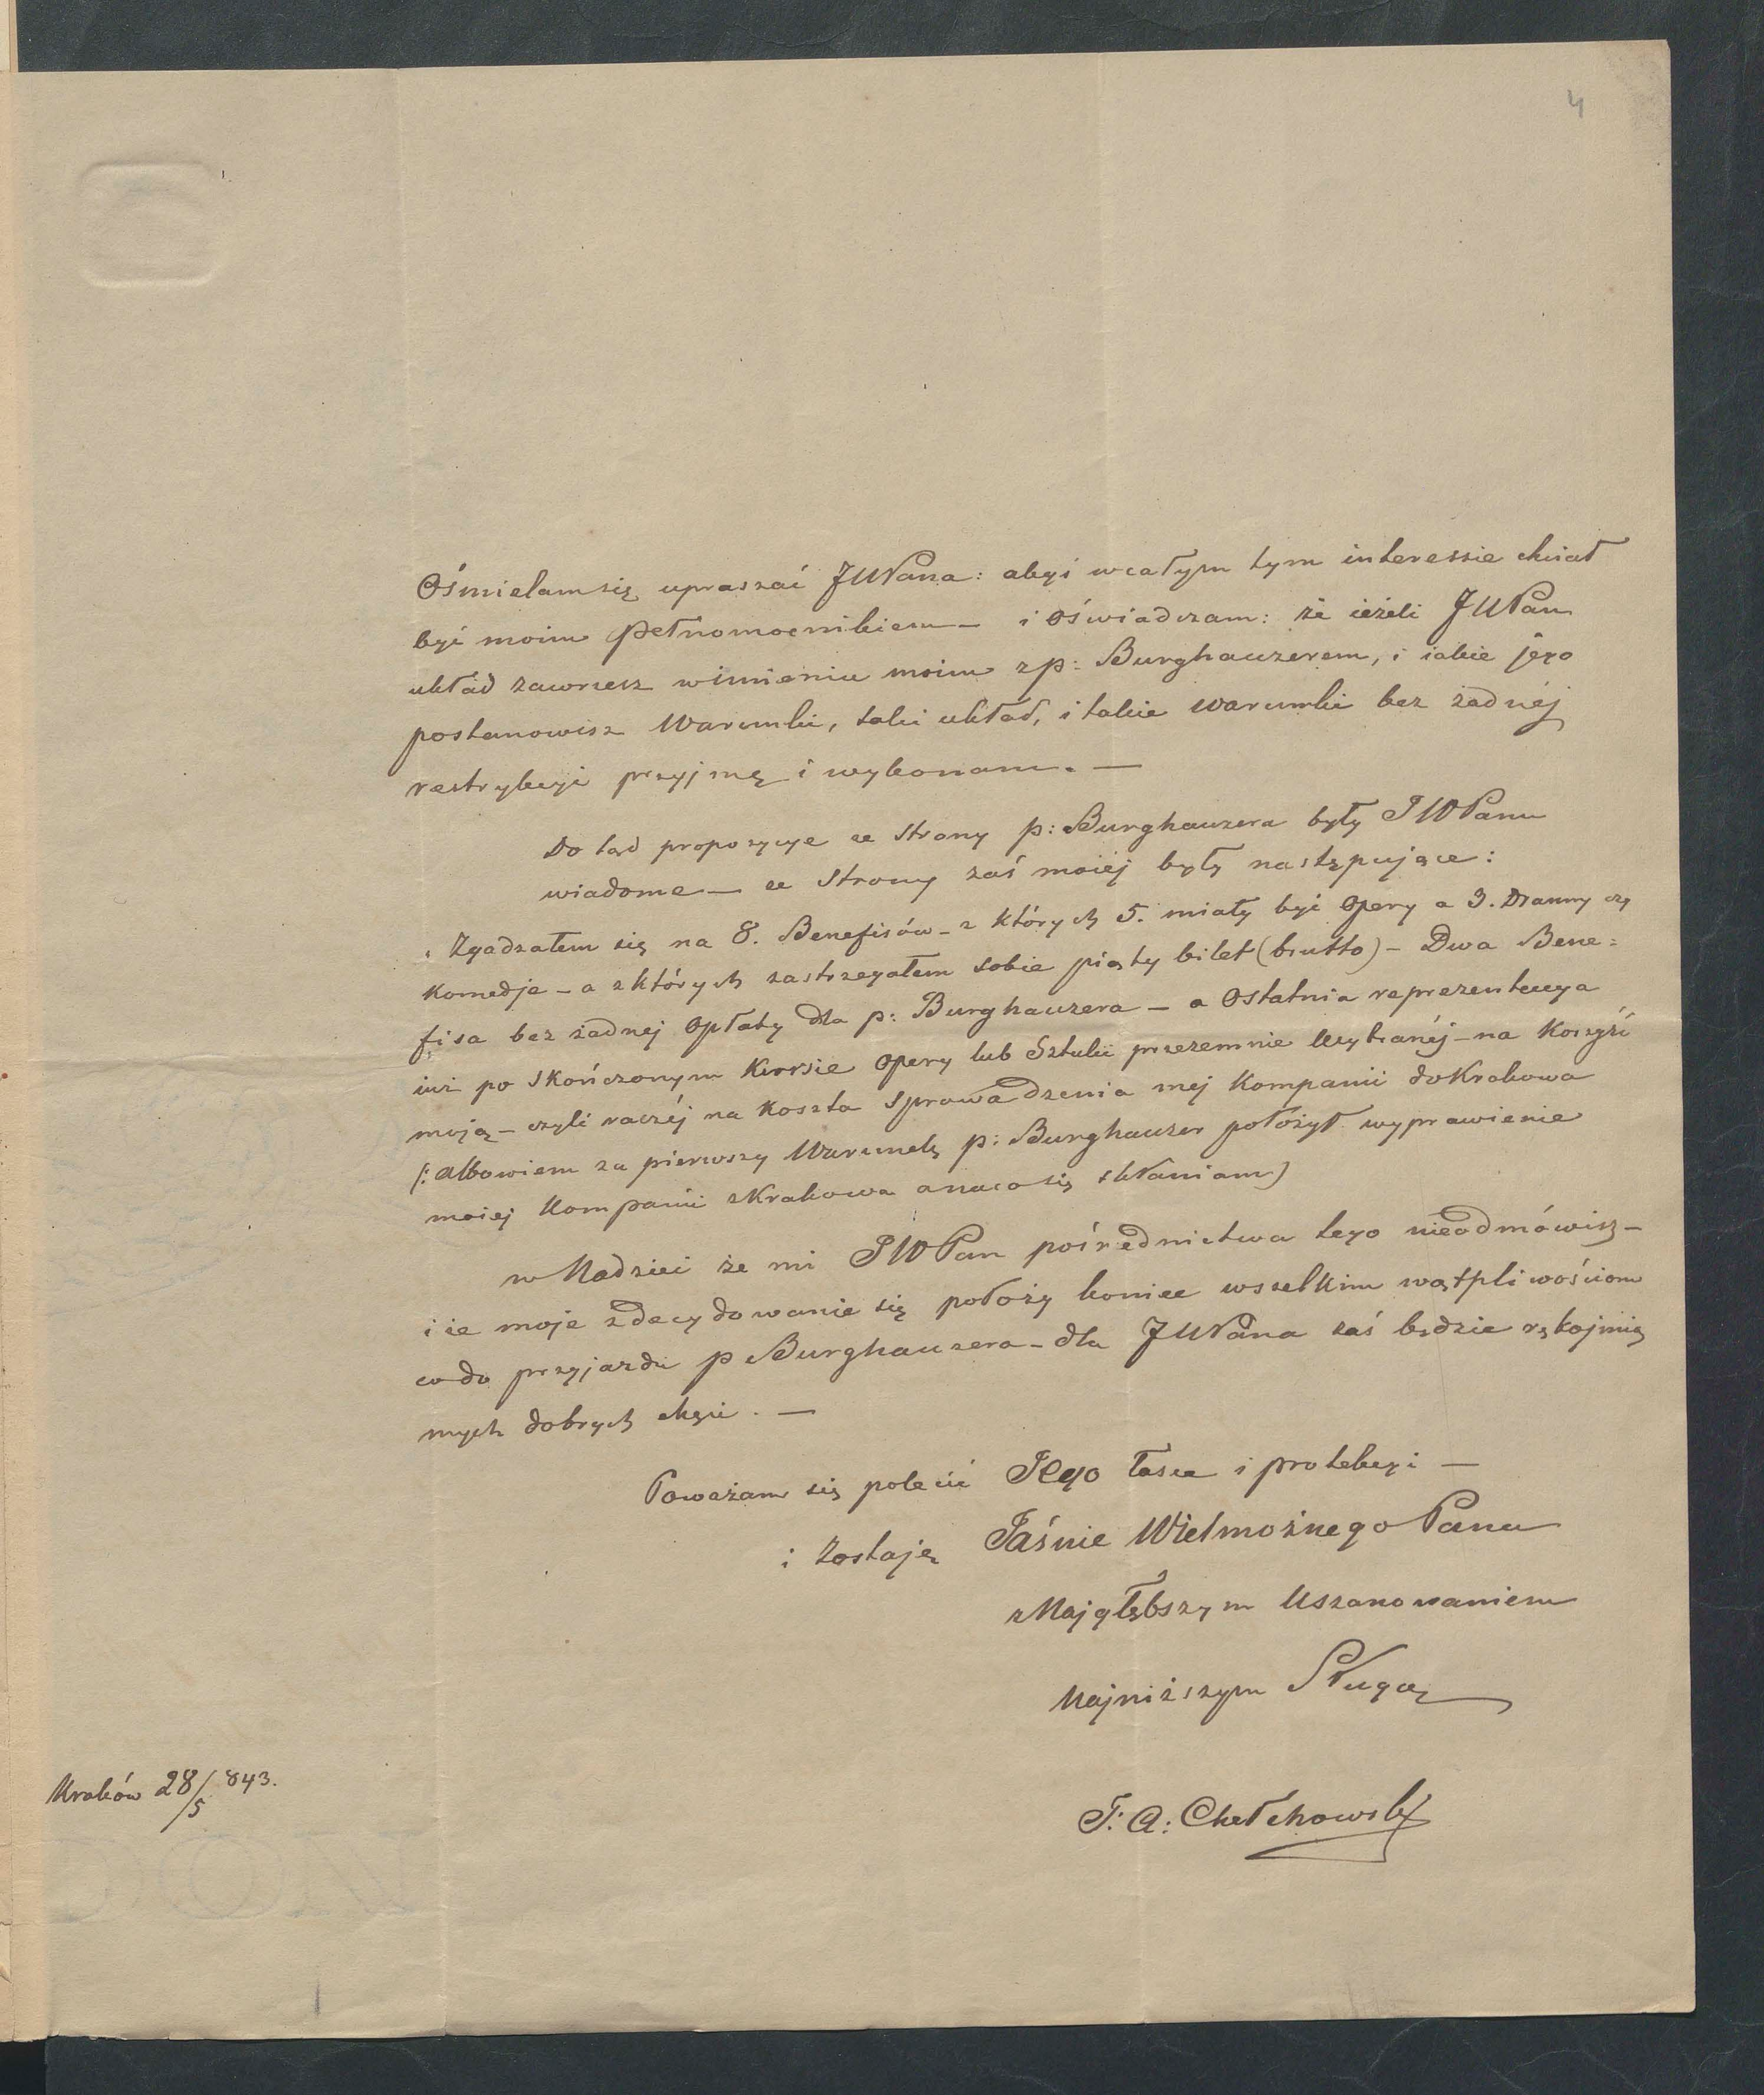 4
Ośmielam się upraszać JWPana: abyś wcałym tym interessie chciał
być moim pełnomocnikiem — i oświadczam: że ieżeli JWPan
układ zawrzesz wimieniu moim zp: Burghauzerem, i iakie jego
postanowisz Warunki, taki układ, i takie warunki bez żadnéj
restrykcyi przyjmę i wykonam. —
Do tąd propozycye ze Strony p: Burghauzera były JWPanu
wiadome — ze Strony zaś moiéj były następujące:
Zgadzałem się na 8. Benefisów – z których 5. miały być Opery a 3. Dramy czy
Komedje – a zktórych zastrzegałem sobie piąty bilet (brutto) – Dwa Bene=
fisa bez żadnej Opłaty dla p: Burghauzera – a Ostatnia reprezentacya
iuż po Skończonym Kursie Opery lub Sztuki przezemnie Wybranéj – na Korzyść
moją – czyli raczéj na Koszta Sprowadzenia mej Kompanii doKrakowa
(: albowiem za pierwszy Warunek p: Burghauzer położył wyprawienie
moiej Kompanii zKrakowa anaco się skłaniam)
w Nadziei że mi JWPan pośrednictwa tego nieodmówisz –
i że moje zdecydowanie się położy koniec wszelkim wątpliwościom
codo przyjazdu p Burghauzera – dla JWPana zaś będzie rękojmią
mych dobrych chęci. —
Poważam się polecić Jego łasce i protekcyi —
i Zostaję Jaśnie Wielmożnego Pana
zNajgłębszym Uszanowaniem
Najniższym Sługą
T: A: Chełchowski
Kraków 28/5 843.